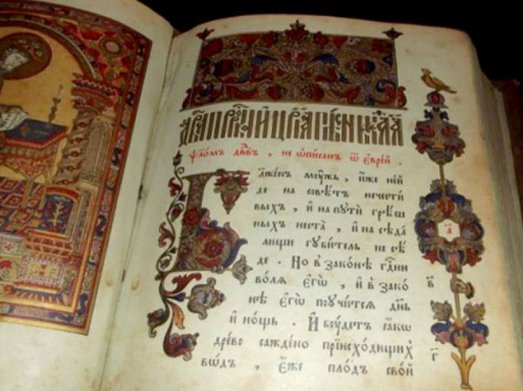 Ѱаломъ дв҃дъ, не ѡ҆писанъ ѿ є҆врей.
Блаженъ моужъ, и҆же не и҆
де на совѣтъ нечести
выхъ, и҆ на пути грѣш
ныхъ неста, и҆ на сѣда
лищи губитель не сѣ
де. Но в законѣ гдн҃и
волѧ є҆гѡ, и҆ в зако
нѣ є҆гѡ поучитсѧ дн҃ь
и҆ нощь. И҆ боудетъ ꙗ҆ко
древо саждено приисходищихъ
водъ, є҆же плодъ свой
а҃
в҃
г҃